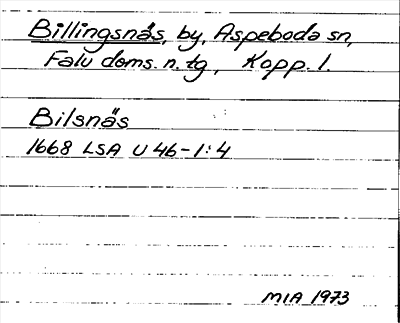 Billingsnäs, by, Aspeboda sn,
Falu doms. n. tg, Kopp. l.
Bilsnäs
1668 LSA U 46-1:4
MIA 1973